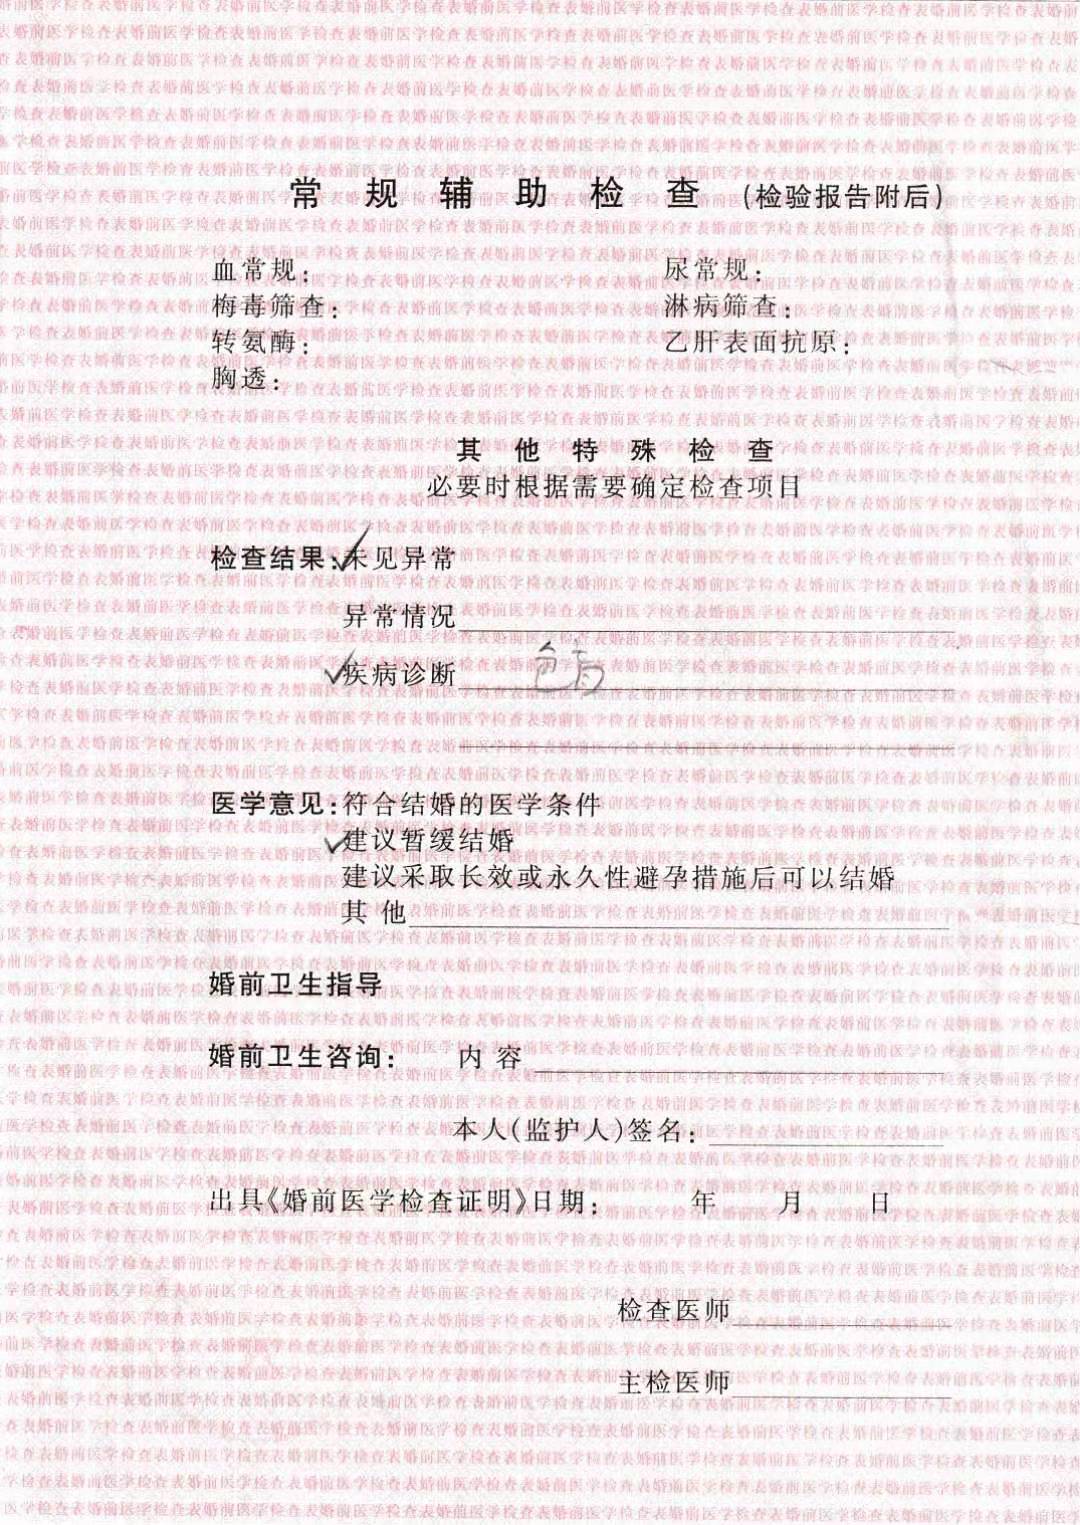 常规辅助检查 (检验报告附后)
血常规: 尿常规:
梅毒筛查: 淋病筛查:
转氨酶: 乙肝表面抗原:
胸透:
其他特殊检查
必要时根据需要确定检查项目
检查结果: ✓未见异常
异常情况
✓疾病诊断 色盲
医学意见: 符合结婚的医学条件
✓建议暂缓结婚
建议采取长效或永久性避孕措施后可以结婚
其他
婚前卫生指导
婚前卫生咨询: 内容
本人(监护人)签名:
出具《婚前医学检查证明》日期: 年 月 日
检查医师
主检医师